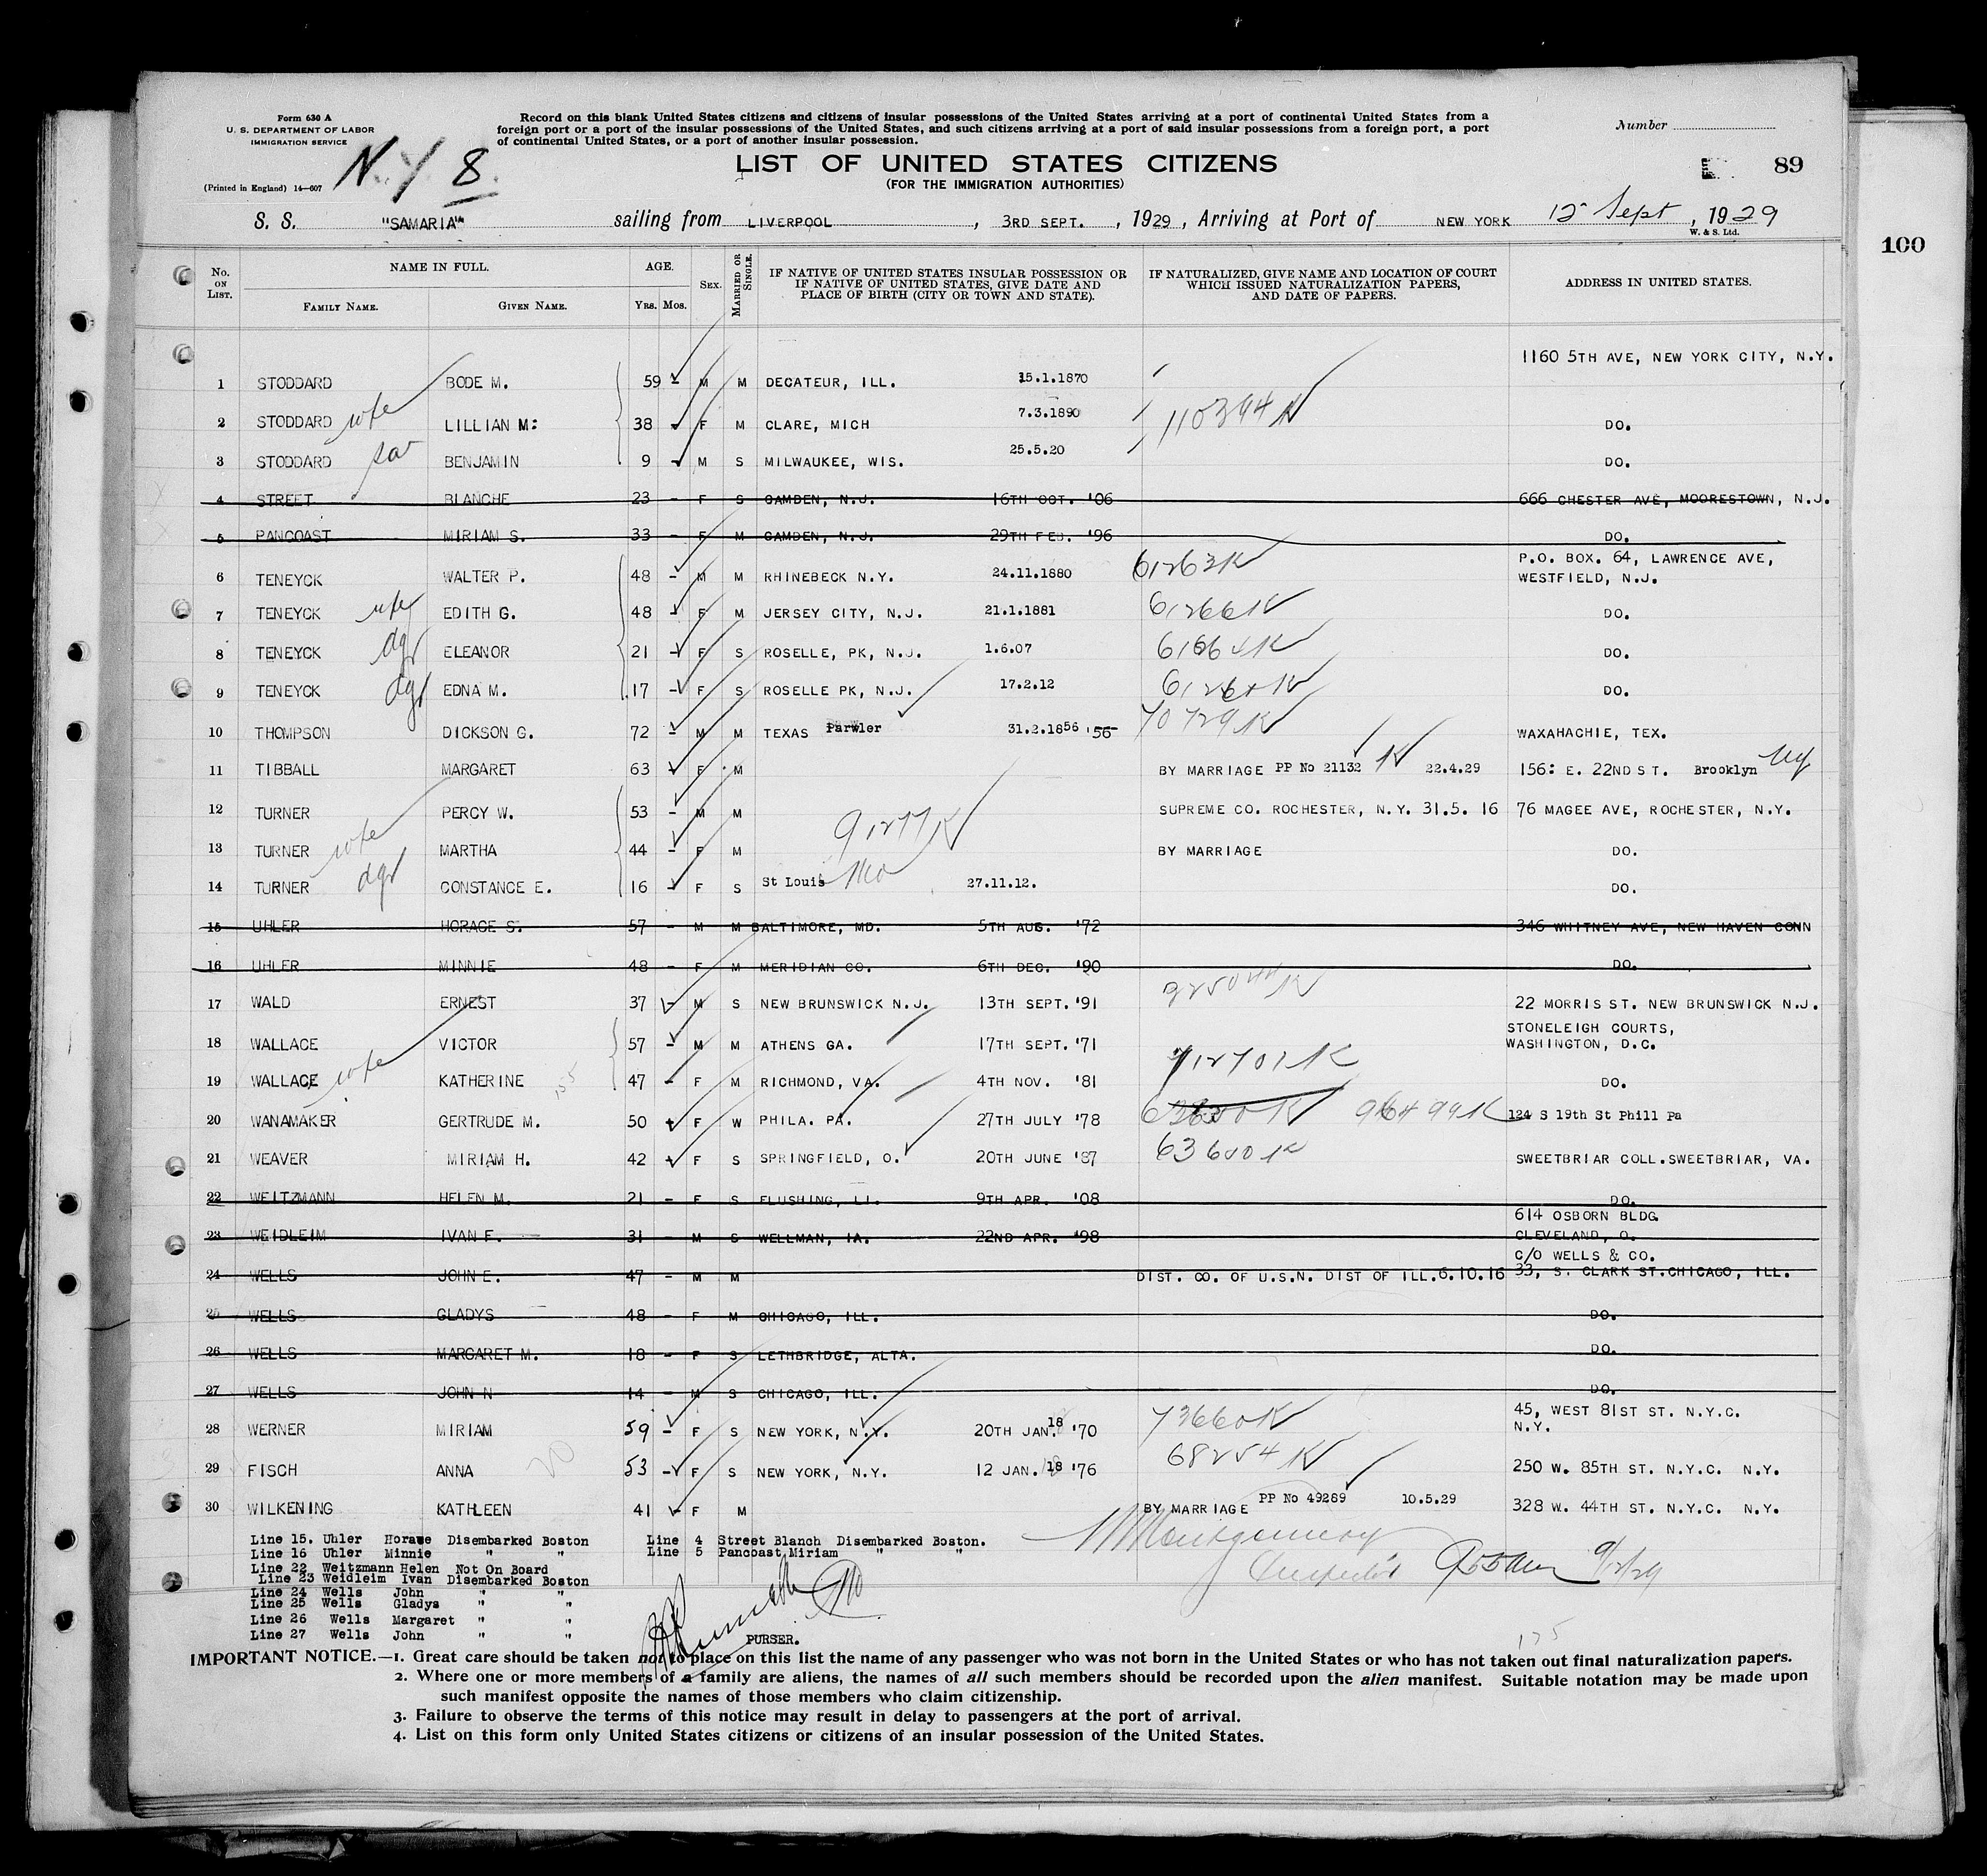 Form 630 A
U. S. DEPARTMENT OF LABOR
IMMIGRATION SERVICE
(Printed in England) 14—607
N.Y 8
Record on this blank United States citizens and citizens of insular possessions of the United States arriving at a port of continental United States from a
foreign port or a port of the insular possessions of the United States, and such citizens arriving at a port of said insular possessions from a foreign port, a port
of continental United States, or a port of another insular possession.
Number
LIST OF UNITED STATES CITIZENS
(FOR THE IMMIGRATION AUTHORITIES)
89
100
S. S. "SAMARIA" sailing from LIVERPOOL, 3RD SEPT., 1929, Arriving at Port of NEW YORK 12 Sept, 1929
W. & S. Ltd.
No. ON LIST. NAME IN FULL. FAMILY NAME. GIVEN NAME. AGE. YRS. MOS. SEX. MARRIED OR SINGLE. IF NATIVE OF UNITED STATES INSULAR POSSESSION OR IF NATIVE OF UNITED STATES, GIVE DATE AND PLACE OF BIRTH (CITY OR TOWN AND STATE). IF NATURALIZED, GIVE NAME AND LOCATION OF COURT WHICH ISSUED NATURALIZATION PAPERS, AND DATE OF PAPERS. ADDRESS IN UNITED STATES.
1 STODDARD BODE M. 59 - M M DECATEUR, ILL. 15.1.1870 1160 5TH AVE, NEW YORK CITY, N.Y.
2 STODDARD wfe LILLIAN M: 38 - F M CLARE, MICH 7.3.1890 110394 K DO.
3 STODDARD BENJAMIN 9 - M S MILWAUKEE, WIS. 25.5.20 DO.
4 STREET BLANCHE 23 - F S CAMDEN, N.J. 16TH OCT. '06 666 CHESTER AVE, MOORESTOWN, N.J.
5 PANCOAST MIRIAM S. 33 - F M CAMDEN, N.J. 29TH FEB. '96 DO.
6 TENEYCK WALTER P. 48 - M M RHINEBECK N.Y. 24.11.1880 61263K P.O. BOX. 64, LAWRENCE AVE, WESTFIELD, N.J.
7 TENEYCK wfe EDITH G. 48 - F M JERSEY CITY, N.J. 21.1.1881 61266K DO.
8 TENEYCK dgr ELEANOR 21 - F S ROSELLE, PK, N.J. 1.6.07 DO.
9 TENEYCK dgr EDNA M. 17 - F S ROSELLE PK, N.J. 17.2.12 DO.
10 THOMPSON DICKSON G. 72 - M M TEXAS 31.2.1856 '56 70729K WAXAHACHIE, TEX.
11 TIBBALL MARGARET 63 - F M BY MARRIAGE PP No 21132 K 22.4.29 156: E. 22ND ST. Brooklyn NY
12 TURNER PERCY W. 53 - M M SUPREME CO. ROCHESTER, N.Y. 31.5. 16 76 MAGEE AVE, ROCHESTER, N.Y.
13 TURNER wfe MARTHA 44 - F M 91277K BY MARRIAGE DO.
14 TURNER dgr CONSTANCE E. 16 - F S St Louis Mo 27.11.12. DO.
15 UHLER HORACE S. 57 - M M BALTIMORE, MD. 5TH AUG. '72 346 WHITNEY AVE, NEW HAVEN CONN
16 UHLER MINNIE 48 - F M MERIDIAN CO. 6TH DEC. '90 DO.
17 WALD ERNEST 37 - M S NEW BRUNSWICK N.J. 13TH SEPT. '91 22 MORRIS ST. NEW BRUNSWICK N.J.
18 WALLACE VICTOR 57 - M M ATHENS GA. 17TH SEPT. '71 STONELEIGH COURTS, WASHINGTON, D.C.
19 WALLACE wfe KATHERINE 47 - F M RICHMOND, VA. 4TH NOV. '81 DO.
20 WANAMAKER GERTRUDE M. 50 - F W PHILA. PA. 27TH JULY '78 96499K 124 S 19th St Phill Pa
21 WEAVER MIRIAM H. 42 - F S SPRINGFIELD, O. 20TH JUNE '87 63600K SWEETBRIAR COLL.SWEETBRIAR, VA.
22 WEITZMANN HELEN M. 21 - F S FLUSHING, LI. 9TH APR. '08 DO.
23 WEIDLEIM IVAN F. 31 - M S WELLMAN, IA. 22ND APR. '98 614 OSBORN BLDG. CLEVELAND, O.
24 WELLS JOHN E. 47 - M M DIST. CO. OF U.S.N. DIST OF ILL.6.10.16 C/O WELLS & CO. 33, S. CLARK ST.CHICAGO, ILL.
25 WELLS GLADYS 48 - F M CHICAGO, ILL. DO.
26 WELLS MARGARET M. 18 - F S LETHBRIDGE, ALTA. DO.
27 WELLS JOHN N 14 - M S CHICAGO, ILL. DO.
28 WERNER MIRIAM 59 - F S NEW YORK, N.Y. 20TH JAN. 18 '70 73660K 45, WEST 81ST ST. N.Y.C. N.Y.
29 FISCH ANNA 53 - F S NEW YORK, N.Y. 12 JAN. 18 '76 68254K 250 W. 85TH ST. N.Y.C. N.Y.
30 WILKENING KATHLEEN 41 - F M BY MARRIAGE PP No 49289 10.5.29 328 W. 44TH ST. N.Y.C. N.Y.
Line 15. Uhler Horace Disembarked Boston Line 4 Street Blanch Disembarked Boston.
Line 16 Uhler Minnie " " Line 5 Pancoast Miriam " "
Line 22 Weitzmann Helen Not On Board
Line 23 Weidleim Ivan Disembarked Boston
Line 24 Wells John " "
Line 25 Wells Gladys " "
Line 26 Wells Margaret " "
Line 27 Wells John " "
Montgomery
Inspector 9/12/29
PURSER.
175
IMPORTANT NOTICE.—1. Great care should be taken not to place on this list the name of any passenger who was not born in the United States or who has not taken out final naturalization papers.
2. Where one or more members of a family are aliens, the names of all such members should be recorded upon the alien manifest. Suitable notation may be made upon
such manifest opposite the names of those members who claim citizenship.
3. Failure to observe the terms of this notice may result in delay to passengers at the port of arrival.
4. List on this form only United States citizens or citizens of an insular possession of the United States.